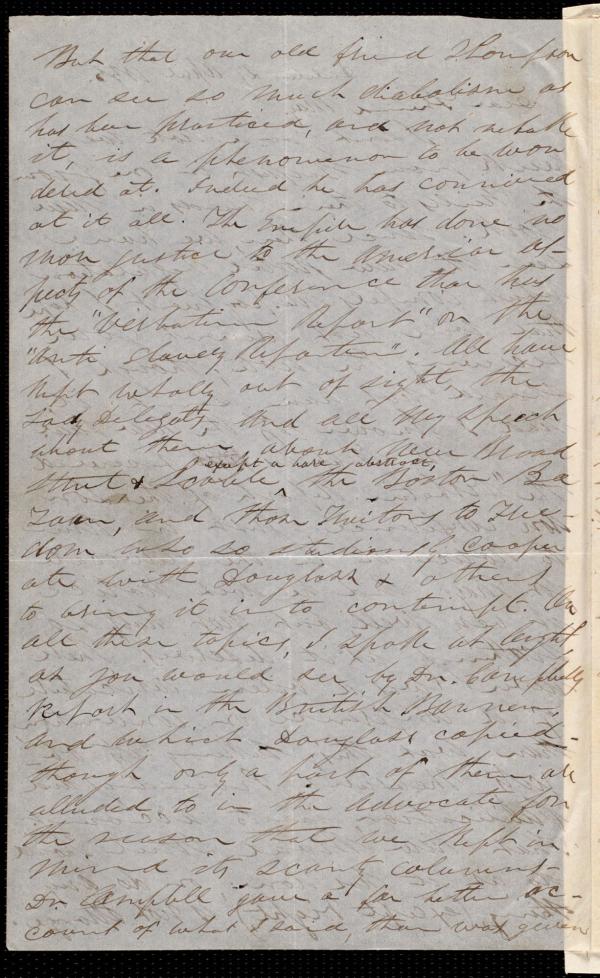 But that our old friend Thompson
can see so much diabolism as
has been practiced, and not rebuke
it, is a phenomenon to be won
dered at. Indeed he has connived
at it all. The Empire has done no
more justice to the American as-
pects of the Conference than has
the "Verbatim Report" or the
"Anti Slavery Reporter". All have
kept wholly out of sight, the
Lady Delegates, and all my speech
about them, about New Broad
Street &
except a bare abstract,
the Boston Ba
zaar, and those Traitors to Free-
dom who so studiously cooper
ate with Douglass & others
to bring it into contempt. On
all these topics, I spoke at length,
as you would see by Dr. Campbell's
Report in the British Banner,
and which Douglass copied -
though only a part of them are
alluded to in the Advocate for
the reason that we kept in
mind its scanty columns.
Dr. Campbell gave a far better ac-
count of what I said, than was given